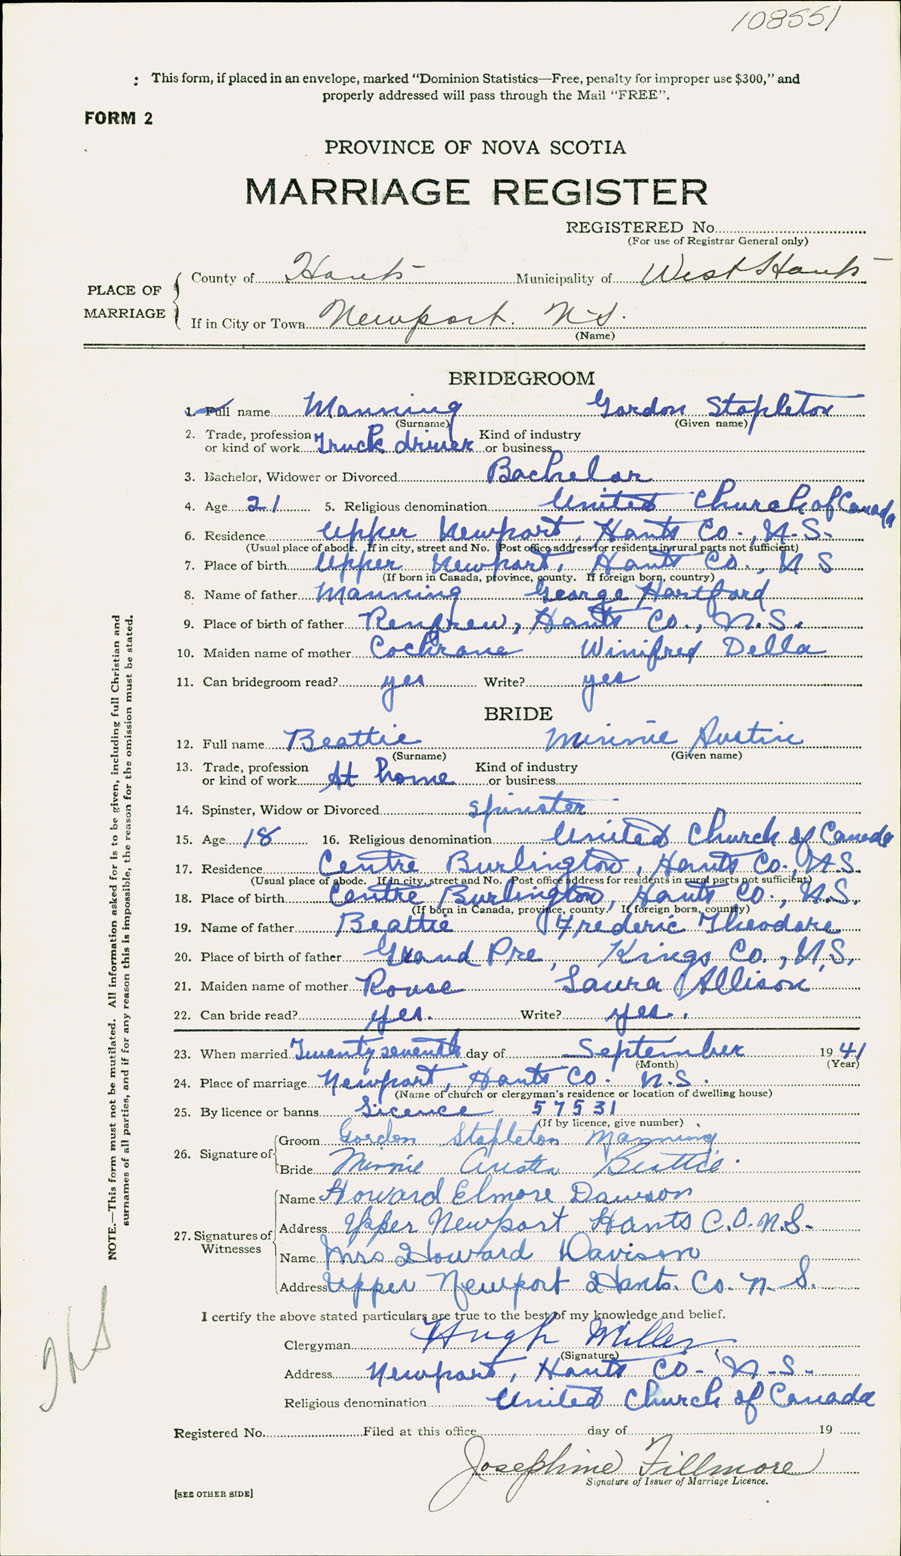 108551
: This form, if placed in an envelope, marked "Dominion Statistics—Free, penalty for improper use $300," and
properly addressed will pass through the Mail "FREE".
FORM 2
PROVINCE OF NOVA SCOTIA
MARRIAGE REGISTER
REGISTERED No.
(For use of Registrar General only)
PLACE OF MARRIAGE
County of Hants Municipality of West Hants
If in City or Town Newport. N.S.
(Name)
BRIDEGROOM
1. Full name Manning Gordon Stapleton
(Surname) (Given name)
2. Trade, profession or kind of work Truck driver Kind of industry or business
3. Bachelor, Widower or Divorced Bachelor
4. Age 21 5. Religious denomination United Church of Canada
6. Residence Upper Newport, Hants Co., N.S.
(Usual place of abode. If in city, street and No. Post office address for residents in rural parts not sufficient)
7. Place of birth Upper Newport, Hants Co., N S
(If born in Canada, province, county. If foreign born, country)
8. Name of father Manning George Hartford
9. Place of birth of father Renfrew, Hants Co., N.S.
10. Maiden name of mother Cochrane Winifred Della
11. Can bridegroom read? yes Write? yes
BRIDE
12. Full name Beattie Minnie Austin
(Surname) (Given name)
13. Trade, profession or kind of work At home Kind of industry or business
14. Spinster, Widow or Divorced Spinster
15. Age 18 16. Religious denomination United Church of Canada
17. Residence Centre Burlington, Hants Co., N.S.
(Usual place of abode. If in city, street and No. Post office address for residents in rural parts not sufficient)
18. Place of birth Centre Burlington, Hants Co., N.S.
(If born in Canada, province, county. If foreign born, country)
19. Name of father Beattie Frederic Theodore
20. Place of birth of father Grand Pre, Kings Co., N.S.
21. Maiden name of mother Rouse Laura Allison
22. Can bride read? yes. Write? yes.
23. When married Twenty seventh day of September 1941
(Month) (Year)
24. Place of marriage Newport, Hants Co. N.S.
(Name of church or clergyman's residence or location of dwelling house)
25. By licence or banns Licence 57531
(If by licence, give number)
26. Signature of
Groom Gordon Stapleton Manning
Bride Minnie Austin Beattie.
27. Signatures of Witnesses
Name Howard Elmore Davison
Address Upper Newport Hants C.O. N.S.
Name Mrs Howard Davison
Address Upper Newport Hants. Co. N. S.
I certify the above stated particulars are true to the best of my knowledge and belief.
Clergyman Hugh Miller
(Signature)
Address Newport, Hants Co. N.S.
Religious denomination United Church of Canada
Registered No. Filed at this office day of 19
Josephine Fillmore
Signature of Issuer of Marriage Licence.
[SEE OTHER SIDE]
NOTE.—This form must not be mutilated. All information asked for is to be given, including full Christian and
surnames of all parties, and if for any reason this is impossible, the reason for the omission must be stated.